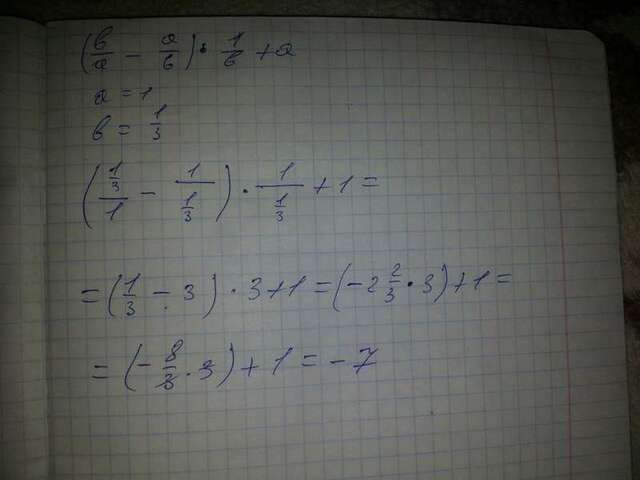 (в/а − а/в) · 1/в + а
а = 1
в = 1/3
((1/3)/1 − 1/(1/3)) · 1/(1/3) + 1 =
= (1/3 − 3) · 3 + 1 = (−2 2/3 · 3) + 1 =
= (−8/3 · 3) + 1 = −7